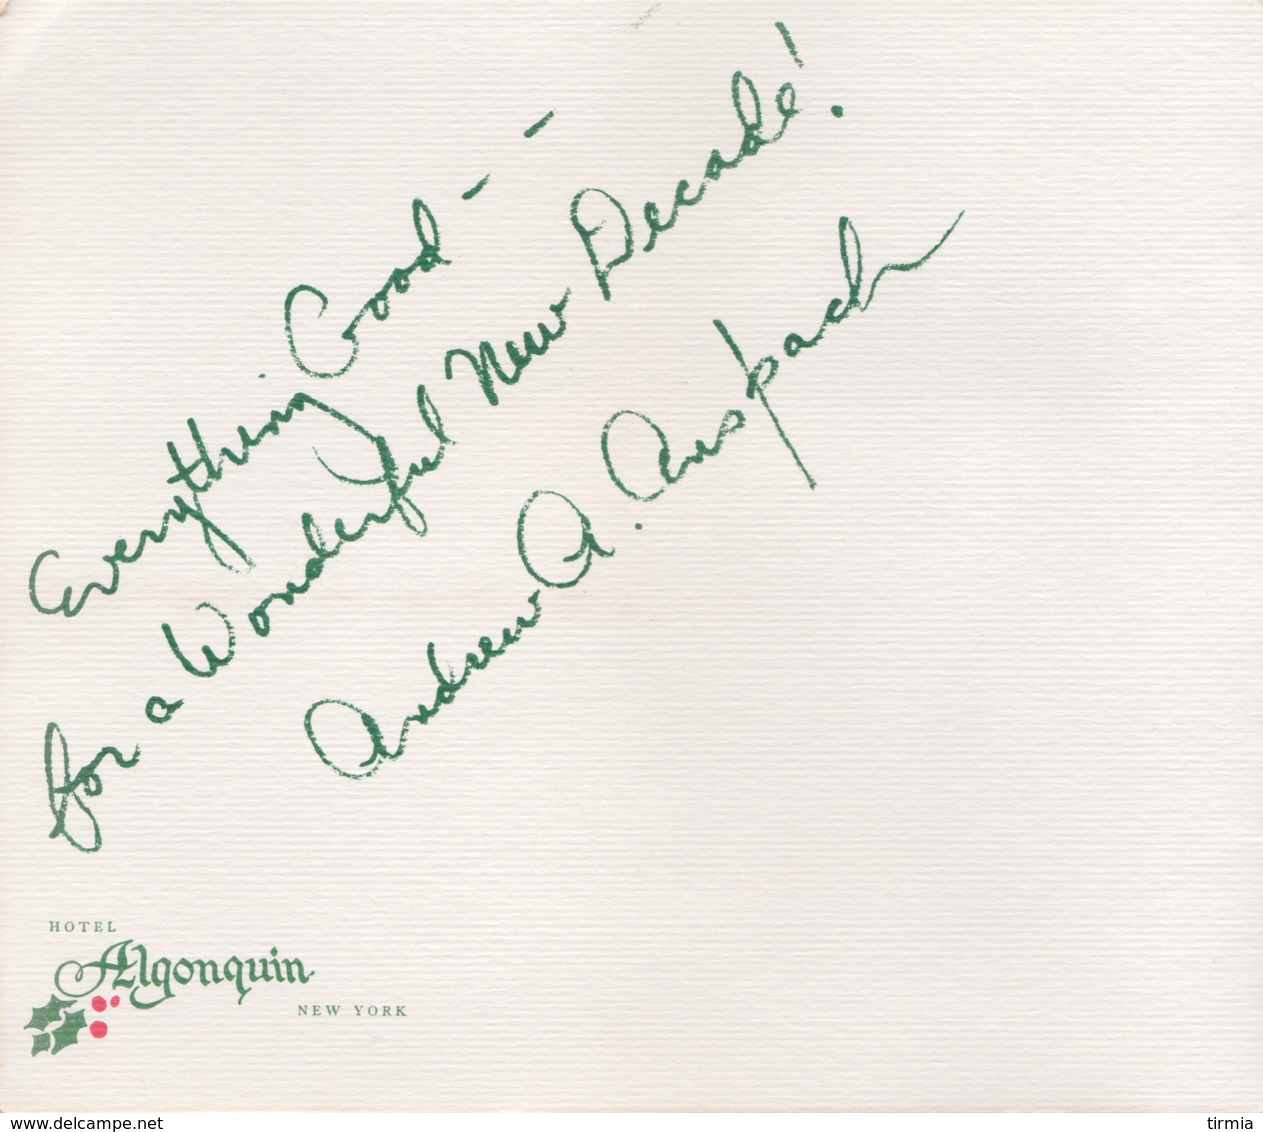 Everything Good - -
for a Wonderful New Decade!
Andrew A. Anspach
HOTEL
Algonquin
NEW YORK
www.delcampe.net
tirmia